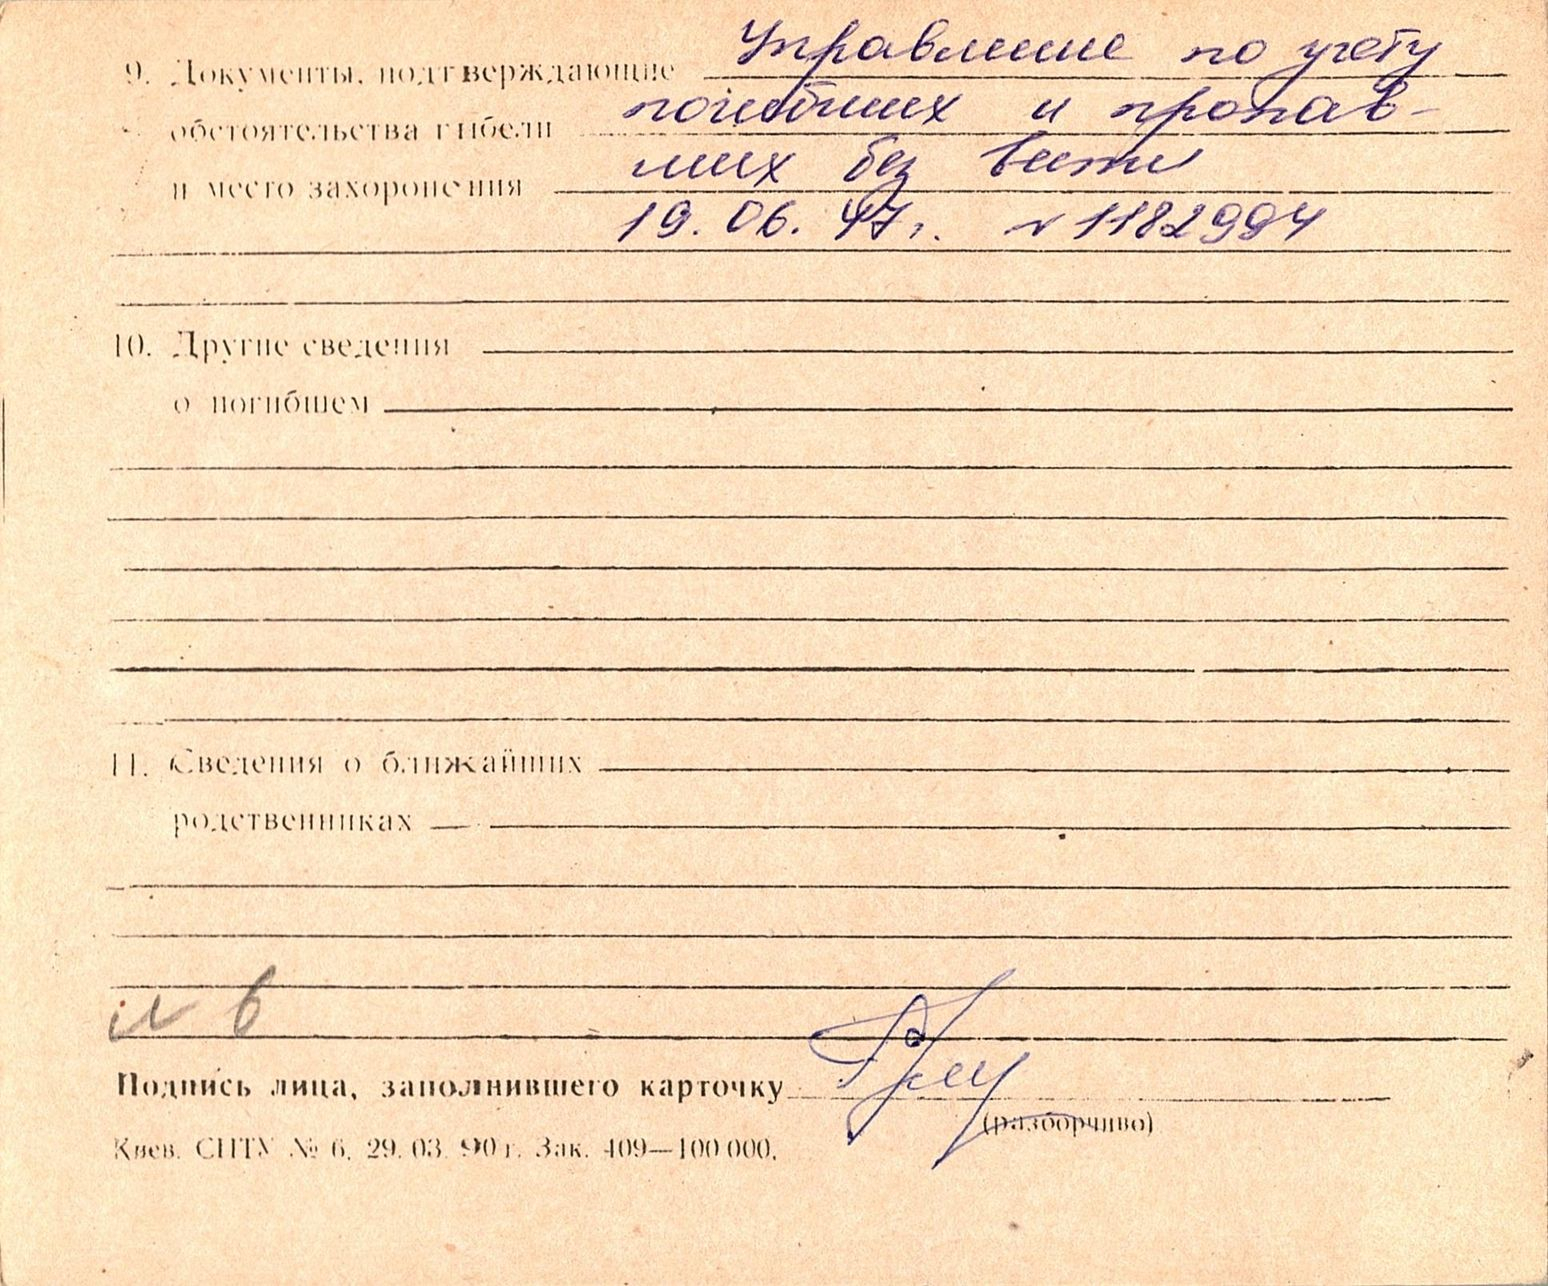 9. Документы, подтверждающие Управление по учету
обстоятельства гибели погибших и пропав-
и место захоронения ших без вести
19.06.47г. № 1182994
10. Другие сведения
о погибшем
11. Сведения о ближайших
родственниках
№ 6
Подпись лица, заполнившего карточку
(разборчиво)
Киев. СПТУ № 6. 29.03.90 г. Зак. 409—100 000.